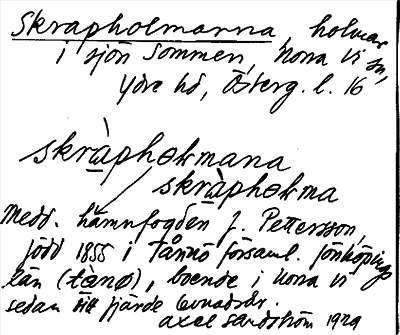 Skrapholmarna, holmar
i sjön Sommen, Norra Vi sn,
Ydre hd, Österg. l. 16
skràphɵłmana
skràphɵłma
Medd. hamnfogden J. Pettersson,
född 1855 i Tånnö församl. Jönköpings
län (tànø), boende i Norra Vi
sedan sitt fjärde levnadsår.
Axel Sandström 1929